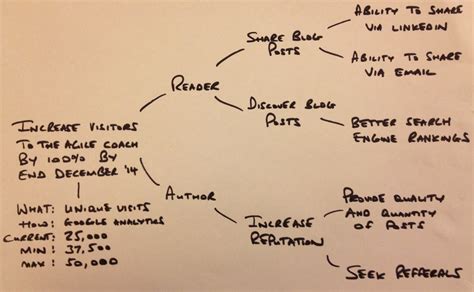 SHARE BLOG
POSTS
ABILITY TO SHARE
VIA LINKEDIN
ABILITY TO SHARE
VIA EMAIL
READER
DISCOVER BLOG
POSTS
BETTER SEARCH
ENGINE RANKINGS
INCREASE VISITORS
TO THE AGILE COACH
BY 100% BY
END DECEMBER '14
WHAT: UNIQUE VISITS
HOW: GOOGLE ANALYTICS
CURRENT: 25,000
MIN: 37,500
MAX: 50,000
AUTHOR
INCREASE
REPUTATION
PROVIDE QUALITY
AND QUANTITY
OF POSTS
SEEK REFERRALS